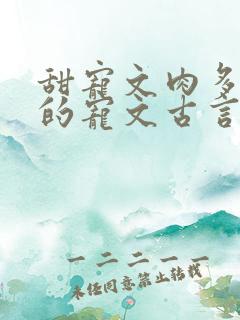 甜寵文肉多
的寵文古言
一二二一一
未经同意禁止转载